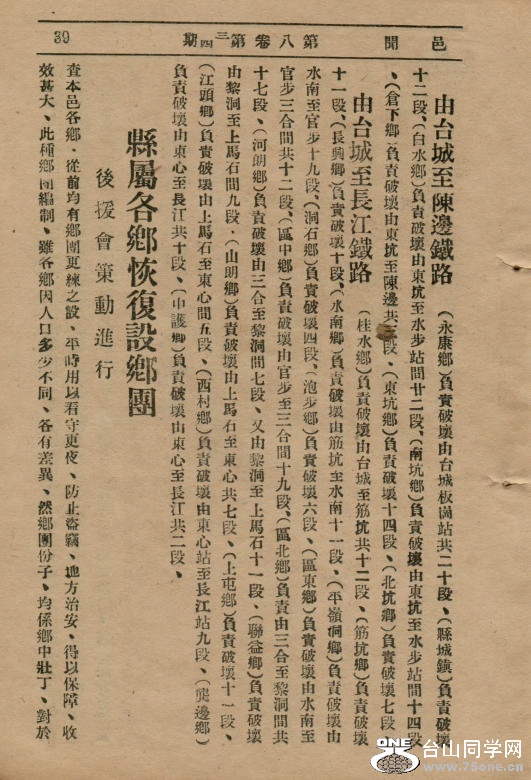 邑聞
第八卷第三四期
39
由台城至陳邊鐵路
(永康鄉)負責破壞由台城板崗站共二十段、(縣城鎮)負責破壞
十二段、(白水鄉)負責破壞由東坑至水步站間廿二段、(南坑鄉)負責破壞由東坑至水步站間十四段
、(倉下鄉)負責破壞由東坑至陳邊共三段、(東坑鄉)負責破壞十四段、(北坑鄉)負責破壞七段、
由台城至長江鐵路
(桂水鄉)負責破壞由台城至筋坑共十二段、(筋坑鄉)負責破壞
十一段、(長興鄉)負責破壞十段、(水南鄉)負責破壞由筋坑至水南十一段、(平嶺洞鄉)負責破壞由
水南至官步十九段、(洞石鄉)負責破壞四段、(泡步鄉)負責破壞六段、(區東鄉)負責破壞由水南至
官步三合間共十二段、(區中鄉)負責破壞由官步至三合間十九段、(區北鄉)負責由三合至黎洞間共
十七段、(河朗鄉)負責破壞由三合至黎洞間七段、又由黎洞至上馬石十一段、(聯益鄉)負責破壞
由黎洞至上馬石間九段、(山朗鄉)負責破壞由上馬石至東心共七段、(上屯鄉)負責破壞十一段、
(江頭鄉)負責破壞由上馬石至東心間五段、(西村鄉)負責破壞由東心站至長江站九段、(龍邊鄉)
負責破壞由東心至長江共十段、(中護鄉)負責破壞由東心至長江共二段、
縣屬各鄉恢復設鄉團
後援會策動進行
查本邑各鄉、從前均有鄉團更練之設、平時用以看守更夜、防止盜竊、地方治安、得以保障、收
效甚大、此種鄉團編制、雖各鄉因人口多少不同、各有差異、然鄉團份子、均係鄉中壯丁、對於
ONE
台山同学网
www.75one.cn